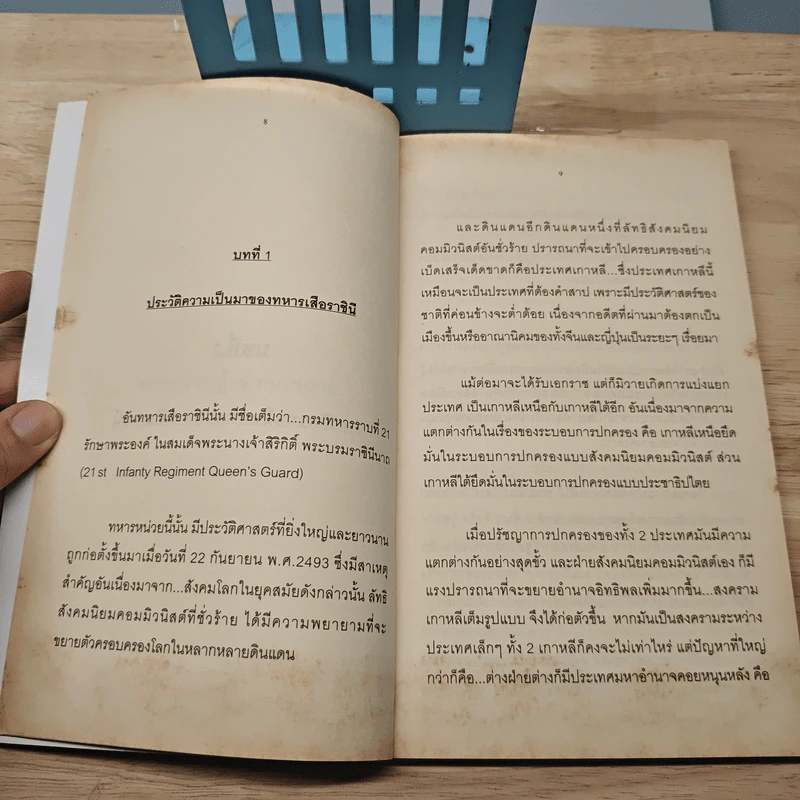 8
บทที่ 1
ประวัติความเป็นมาของทหารเสือราชินี
อันทหารเสือราชินีนั้น มีชื่อเต็มว่า...กรมทหารราบที่ 21
รักษาพระองค์ ในสมเด็จพระนางเจ้าสิริกิติ์ พระบรมราชินีนาถ
(21st Infanty Regiment Queen's Guard)
ทหารหน่วยนี้นั้น มีประวัติศาสตร์ที่ยิ่งใหญ่และยาวนาน
ถูกก่อตั้งขึ้นมาเมื่อวันที่ 22 กันยายน พ.ศ.2493 ซึ่งมีสาเหตุ
สำคัญอันเนื่องมาจาก...สังคมโลกในยุคสมัยดังกล่าวนั้น ลัทธิ
สังคมนิยมคอมมิวนิสต์ที่ชั่วร้าย ได้มีความพยายามที่จะ
ขยายตัวครอบครองโลกในหลากหลายดินแดน
9
และดินแดนอีกดินแดนหนึ่งที่ลัทธิสังคมนิยม
คอมมิวนิสต์อันชั่วร้าย ปรารถนาที่จะเข้าไปครอบครองอย่าง
เบ็ดเสร็จเด็ดขาดก็คือประเทศเกาหลี...ซึ่งประเทศเกาหลีนี้
เหมือนจะเป็นประเทศที่ต้องคำสาป เพราะมีประวัติศาสตร์ของ
ชาติที่ค่อนข้างจะต่ำต้อย เนื่องจากอดีตที่ผ่านมาต้องตกเป็น
เมืองขึ้นหรืออาณานิคมของทั้งจีนและญี่ปุ่นเป็นระยะๆ เรื่อยมา
แม้ต่อมาจะได้รับเอกราช แต่ก็มิวายเกิดการแบ่งแยก
ประเทศ เป็นเกาหลีเหนือกับเกาหลีใต้อีก อันเนื่องมาจากความ
แตกต่างกันในเรื่องของระบอบการปกครอง คือ เกาหลีเหนือยึด
มั่นในระบอบการปกครองแบบสังคมนิยมคอมมิวนิสต์ ส่วน
เกาหลีใต้ยึดมั่นในระบอบการปกครองแบบประชาธิปไตย
เมื่อปรัชญาการปกครองของทั้ง 2 ประเทศมันมีความ
แตกต่างกันอย่างสุดขั้ว และฝ่ายสังคมนิยมคอมมิวนิสต์เอง ก็มี
แรงปรารถนาที่จะขยายอำนาจอิทธิพลเพิ่มมากขึ้น...สงคราม
เกาหลีเต็มรูปแบบ จึงได้ก่อตัวขึ้น หากมันเป็นสงครามระหว่าง
ประเทศเล็กๆ ทั้ง 2 เกาหลีก็คงจะไม่เท่าไหร่ แต่ปัญหาที่ใหญ่
กว่าก็คือ...ต่างฝ่ายต่างก็มีประเทศมหาอำนาจคอยหนุนหลัง คือ